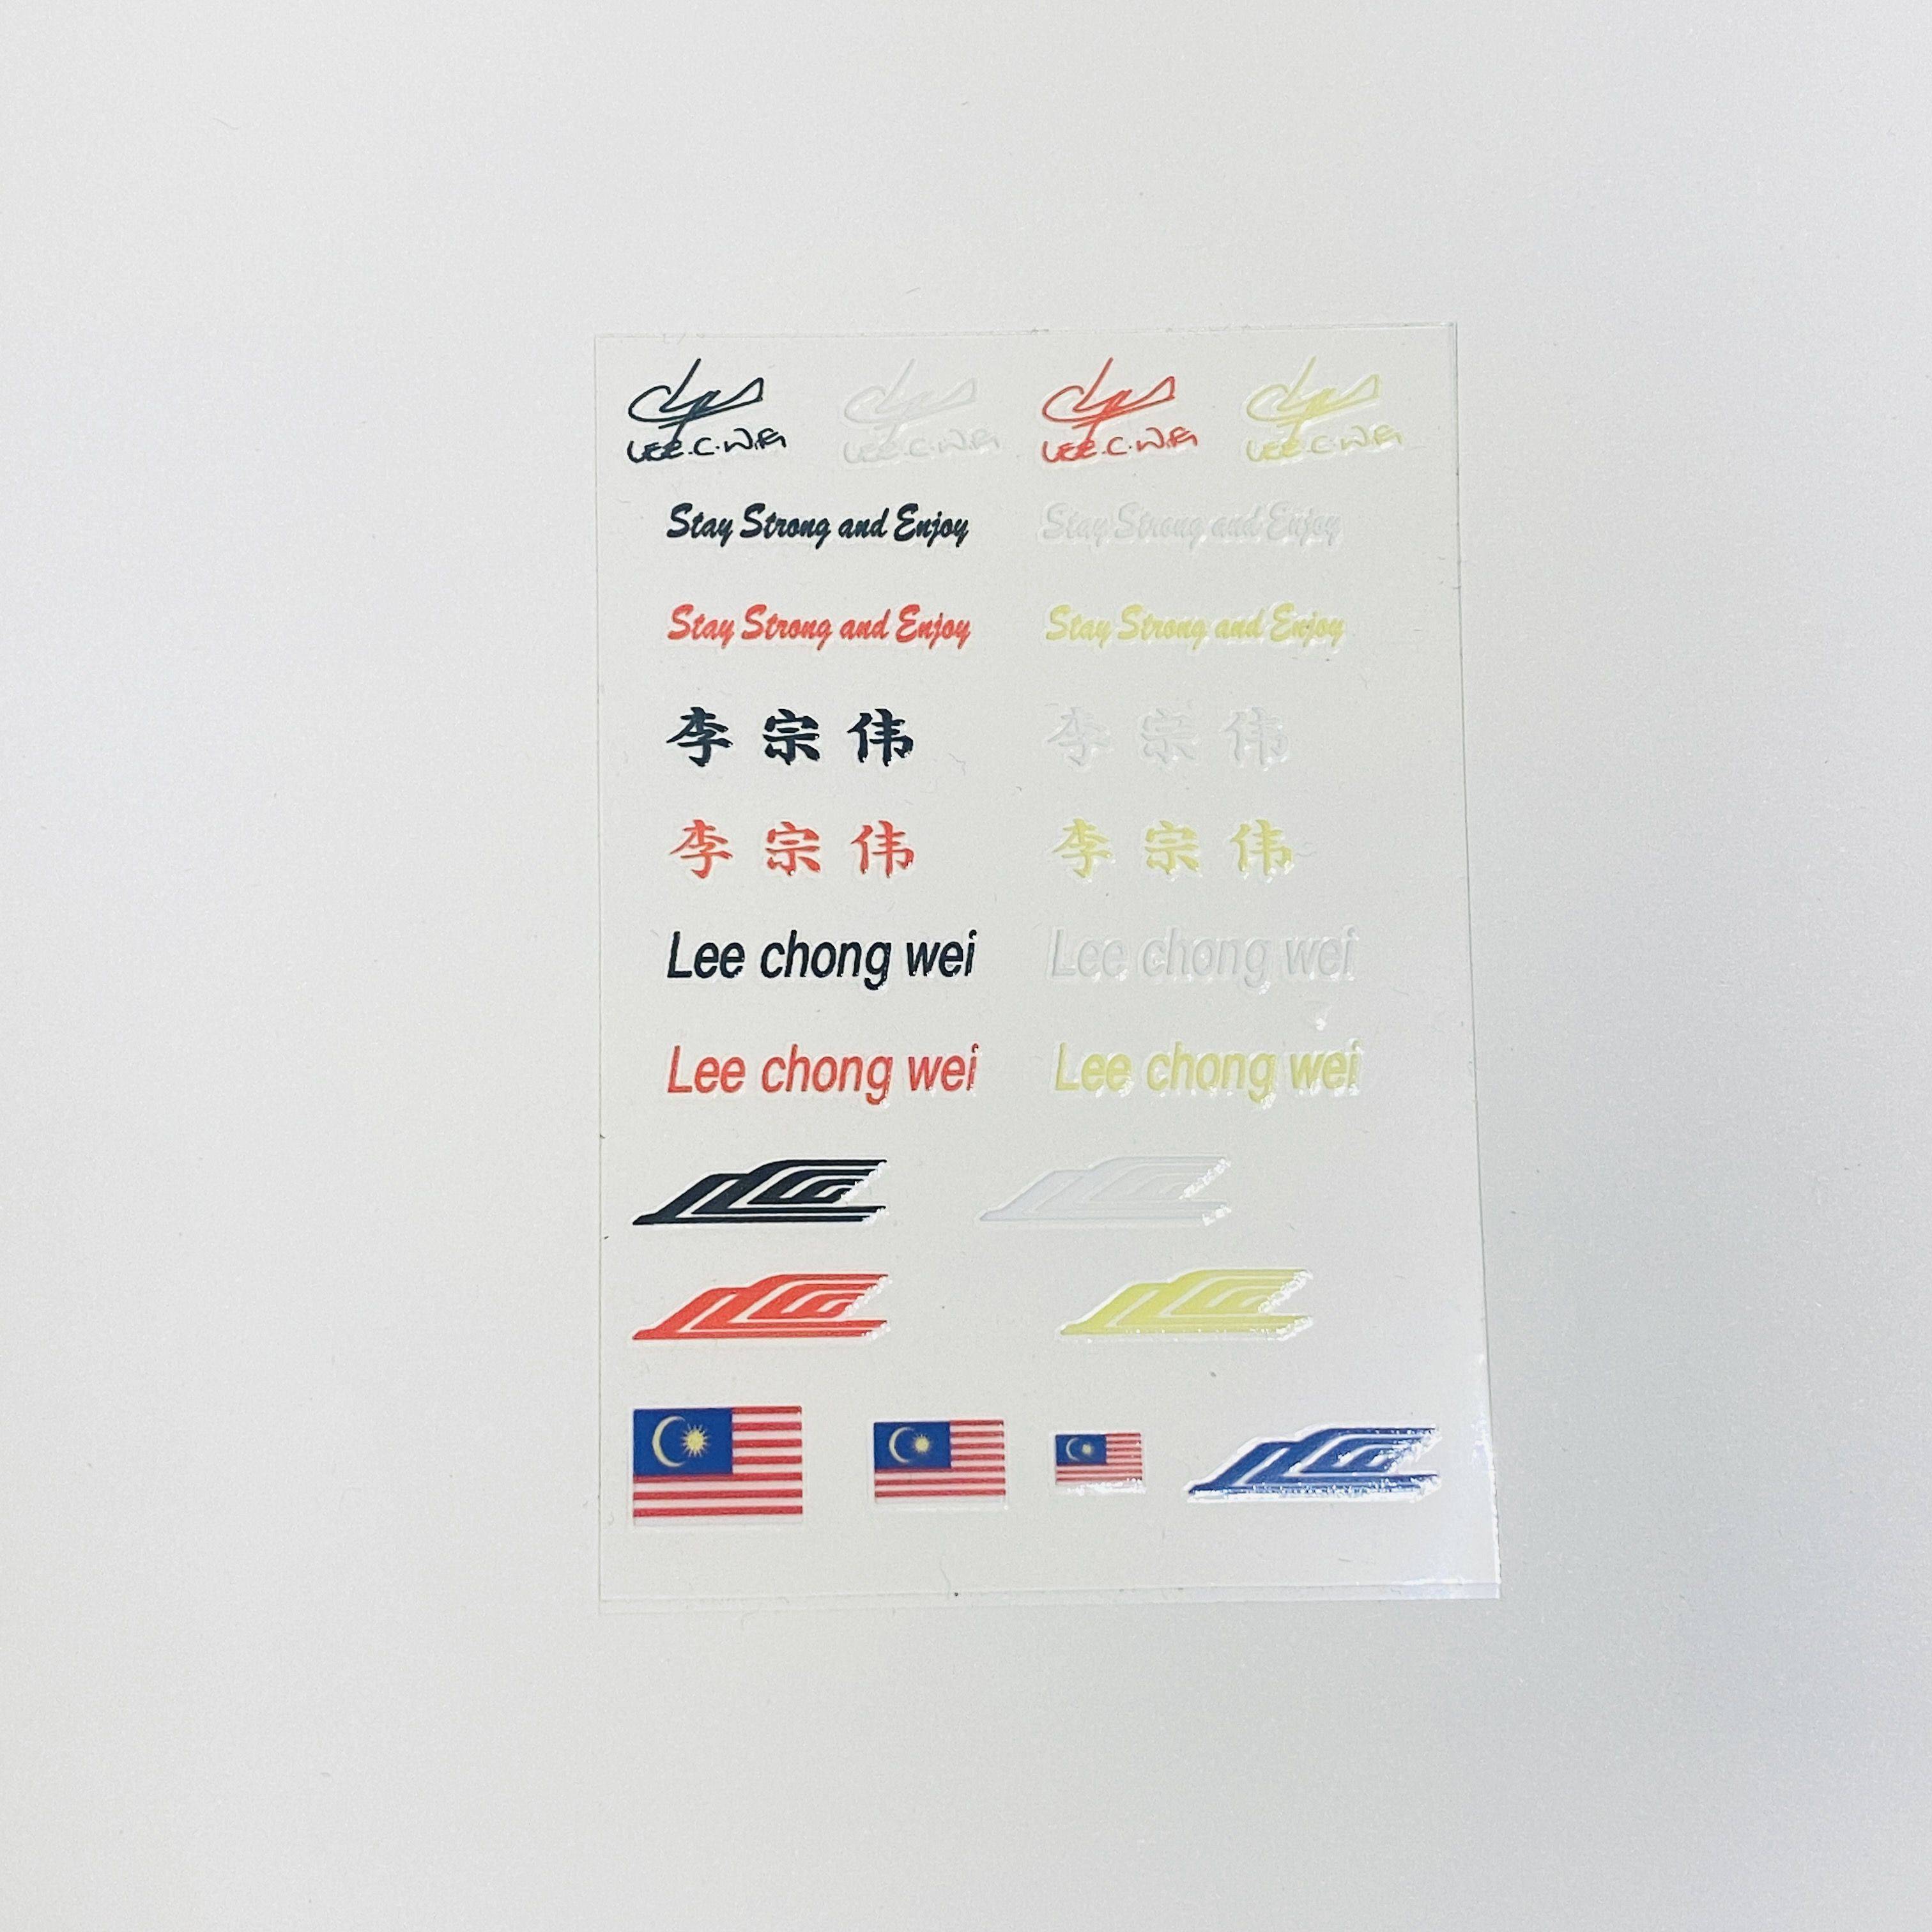 LEE.C.WEI LEE.C.WEI LEE.C.WEI LEE.C.WEI
Stay Strong and Enjoy Stay Strong and Enjoy
Stay Strong and Enjoy Stay Strong and Enjoy
李宗伟 李宗伟
李宗伟 李宗伟
Lee chong wei Lee chong wei
Lee chong wei Lee chong wei